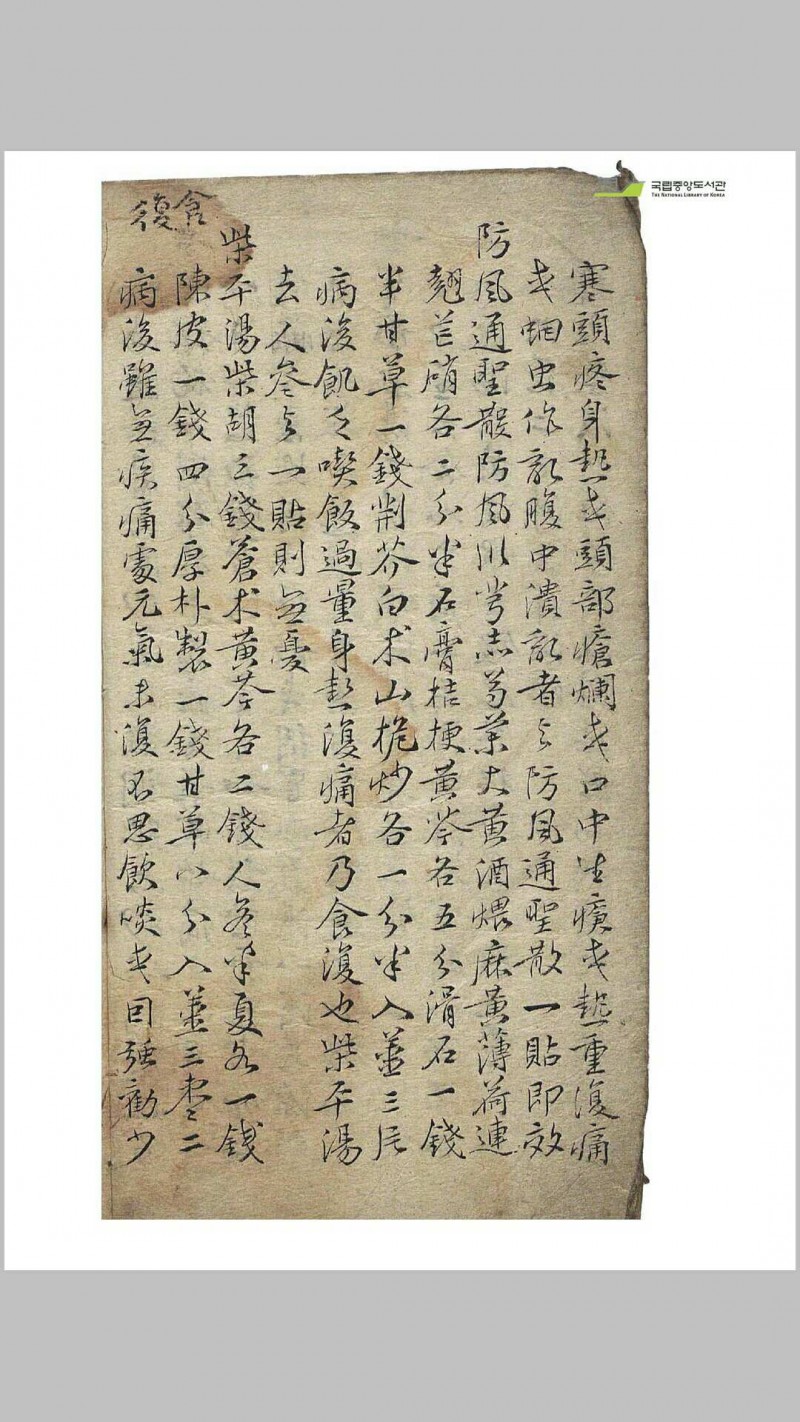 국립중앙도서관
THE NATIONAL LIBRARY OF KOREA
寒頭疼身熱或頭部瘡爛或口中生瘡或熱重復痛
或蛔虫作亂腹中潰亂者与防風通聖散一貼即效
防風通聖散防風川芎赤芍葉大黃酒煨麻黃薄荷連
翹芒硝各二分半石膏桔梗黃芩各五分滑石一錢
半甘草一錢荆芥白朮山梔炒各一分半入薑三片
病後飢乏喫飯過量身熱復痛者乃食復也柴平湯
去人參与一貼則無憂
柴平湯柴胡三錢蒼朮黃芩各二錢人參半夏各一錢
陳皮一錢四分厚朴製一錢甘草八分入薑三棗二
食復
病後雖無疾痛處元氣未復不思飲啖或因强勸少